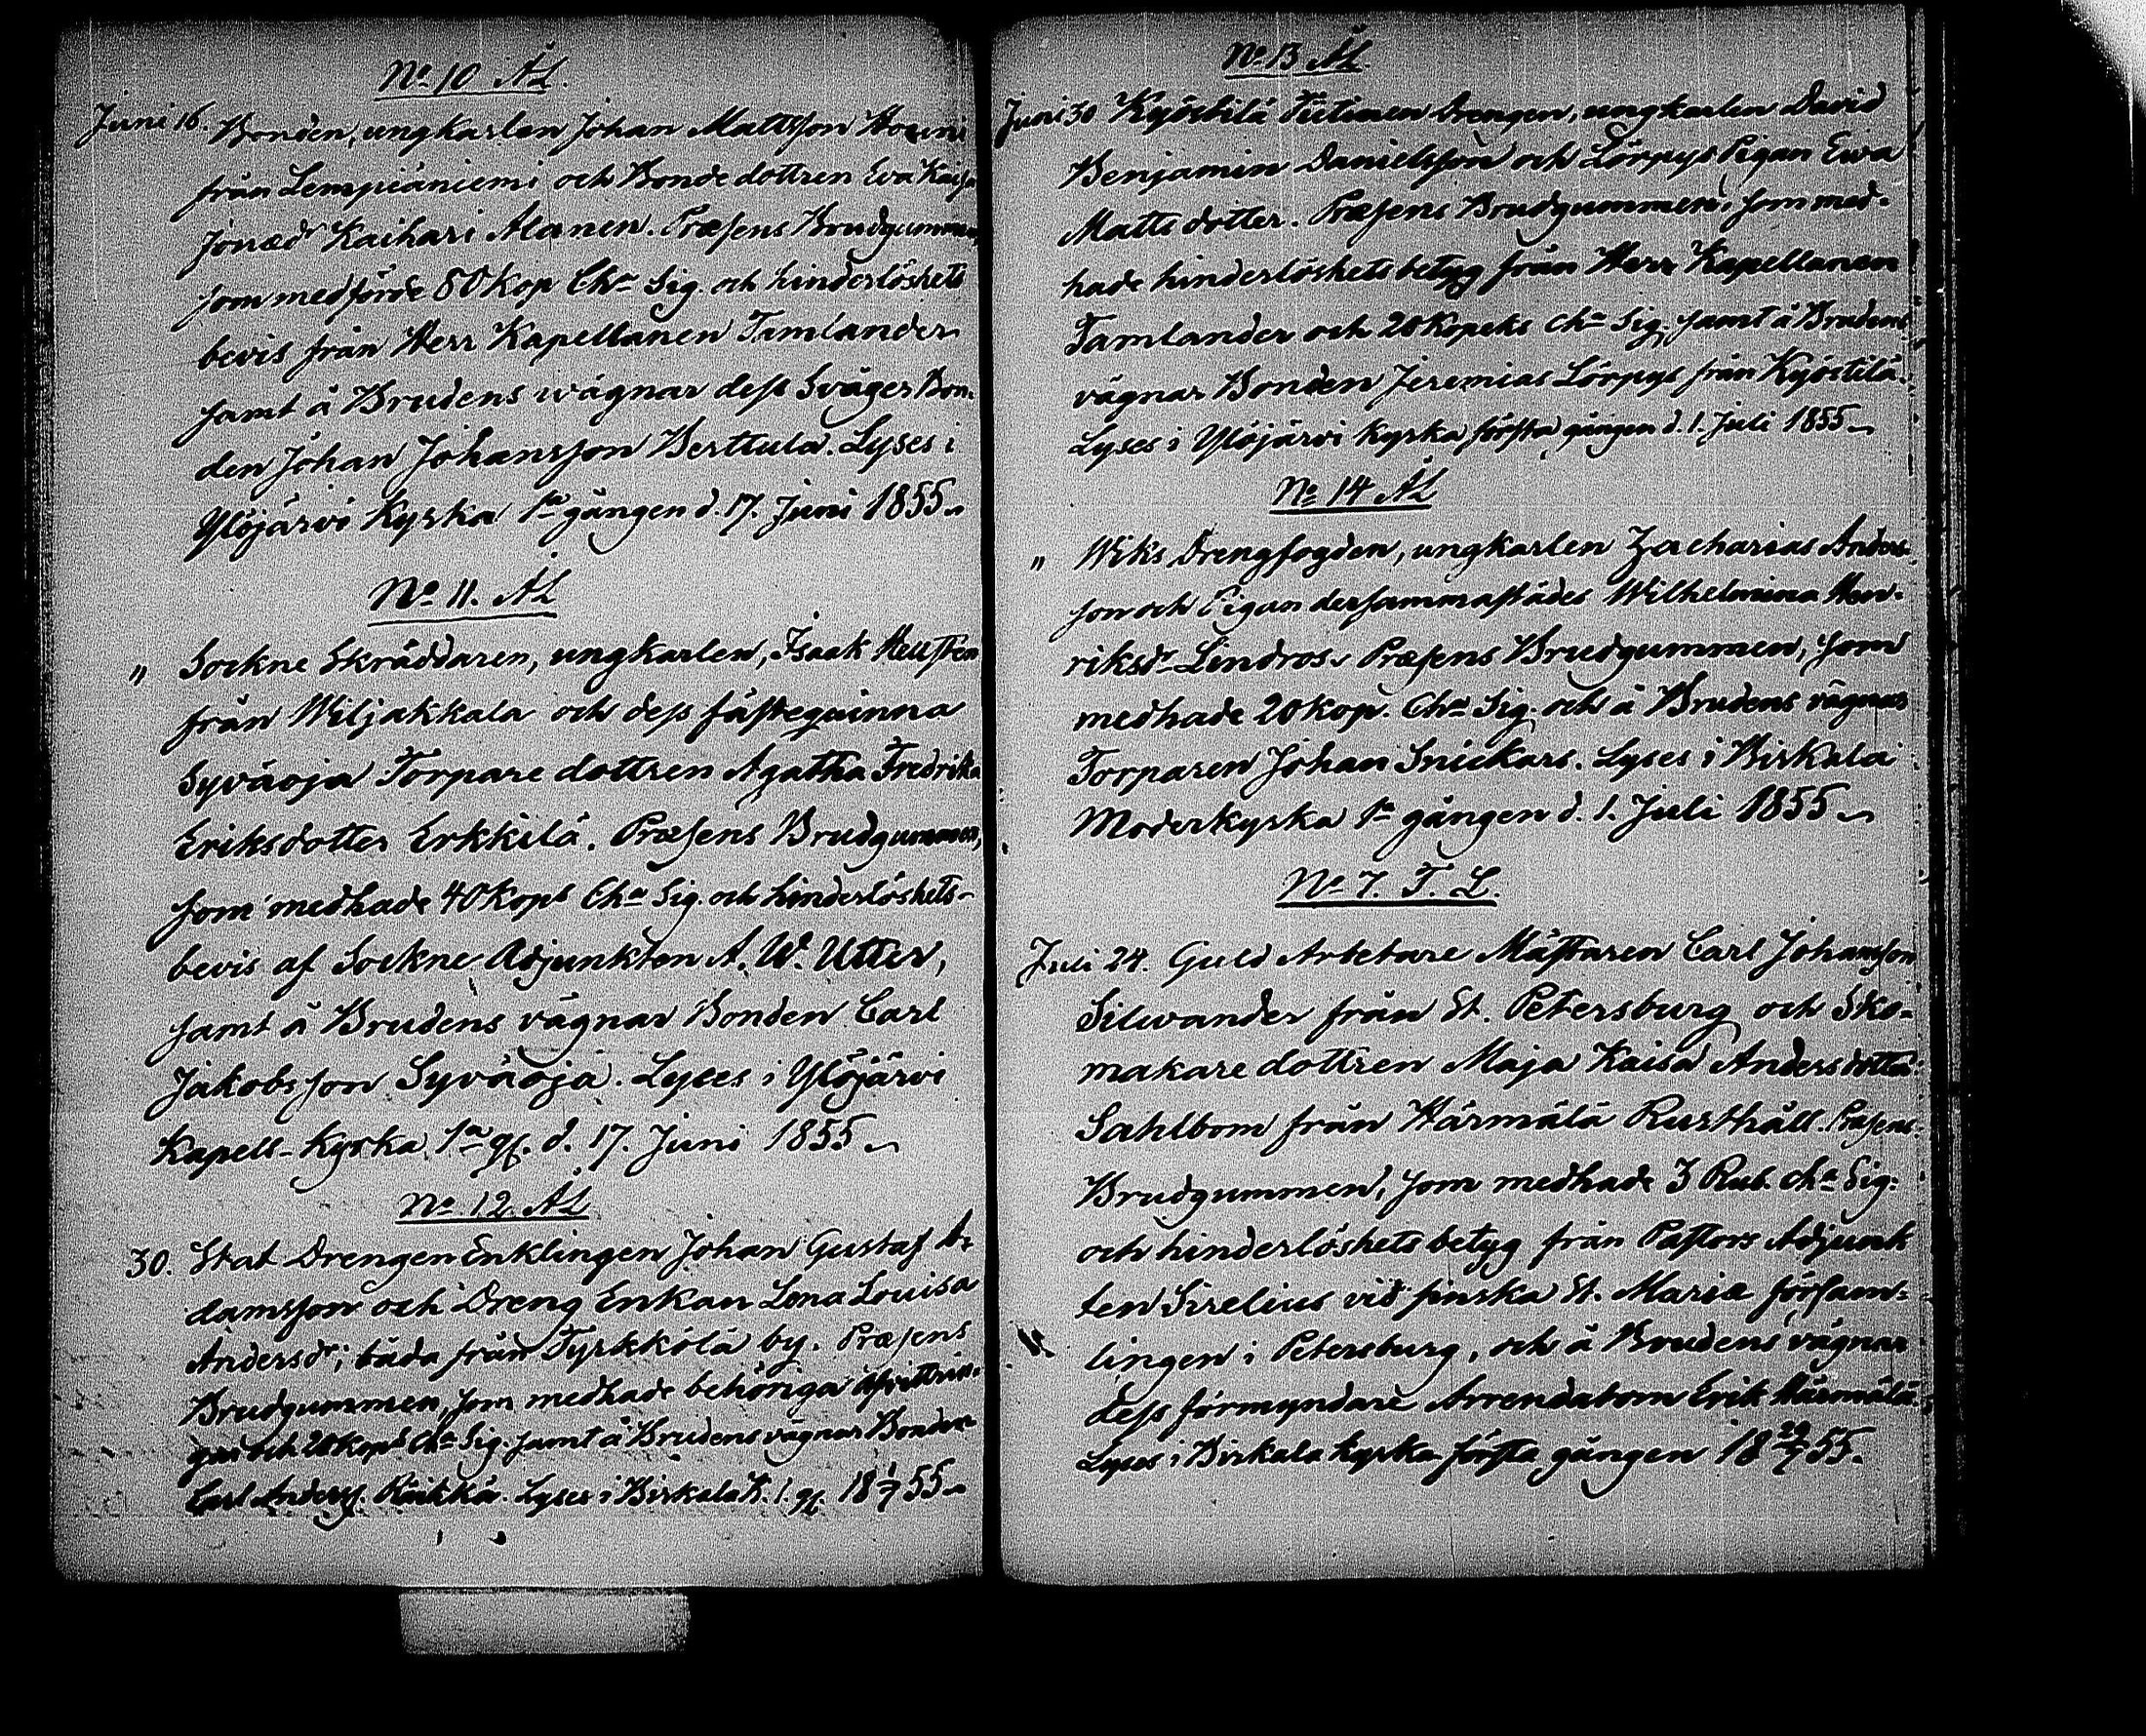 No 10 ÅL.
Juni 16. Bonden, ungkarlen Johan Mattsson
från Lempiäniemi och Bonde dottren Eva Kaisa
Jonædr Kaihari Alanen. Præsens Brudgummen,
som medförde 80 Kop Cha Sig. och hinderlöshets
bevis från Herr Kapellanen Tamlander
samt å Brudens wägnar dess Svåger Bon-
den Johan Johansson Berttula. Lyses i
Ylöjärvi Kyrka 1a gången d. 17. Juni 1855
No 11. ÅL
" Sockne Skräddaren, ungkarlen, Isaak Hellsten
från Wiljakkala och dess fästeqvinna
Syväoja Torpare dottren Agatha Fredrika
Eriksdotter Erkkilä. Præsens Brudgummen,
som medhade 40 Kops Cha Sig. och hinderlöshets-
bevis af Sockne Adjunkten A. W. Utter,
samt å Brudens vägnar Bonden Carl
Jakobsson Syväoja. Lyses i Ylöjärvi
Kapell-Kyrka 1a gg. d. 17. Juni 1855
No 12 ÅL
30. Stat Drengen Enklingen Johan Gustaf A-
damsson och Dreng Enkan Lena Lovisa
Andersdr; båda från Tyrkkölä by. Præsens
Brudgummen, som medhade behöriga Afvittrin-
gar och 20 Kops Cha Sig. samt å Brudens vägnar Bonden
Carl Anderss. Räikkä. Lyses i Birkala K. 1. gg. 18 1/7 55
No 13 ÅL
Juni 30 Kyöstilä Tietinen Drengen, ungkarlen David
Benjamin Danielsson och Lörpys Pigan Ewa
Matts dotter. Præsens Brudgummen, som med-
hade hinderlöshets betyg från Herr Kapellanen
Tamlander och 20 Kopeks cha Sig. samt å Brudens
vägnar Bonden Jeremias Lörpys från Kyöstilä.
Lyses i Ylöjärvi Kyrka första gången d. 1. Juli 1855
No 14 ÅL
" Wiks Drengfogden, ungkarlen Zacharias Anders-
son och Pigan dersammastädes Wilhelmina Hen-
riksdr Lindros. Præsens Brudgummen, som
medhade 20 Kop. Cha Sig. och å Brudens vägnar
Torparen Johan Snickars. Lyses i Birkala
Moderkyrka 1a gången d. 1. Juli 1855
No 7. T. L.
Juli 24. Guld Arbetare Mästaren Carl Johansson
Silwander från St. Petersburg och Sko-
makare dottren Maja Kaisa Andersdotter
Sahlbom från Härmälä Rusthåll. Præsens
Brudgummen, som medhade 3 Rub. cha Sig.
och hinderlöshets betyg från Pastors Adjunk
ten Sirelius vid finska St. Mariæ församl-
lingen i Petersburg, och å Brudens vägnar
dess förmyndare Arrendatorn Erik Härmälä.
Lyses i Birkala kyrka första gången 18 29/7 55.